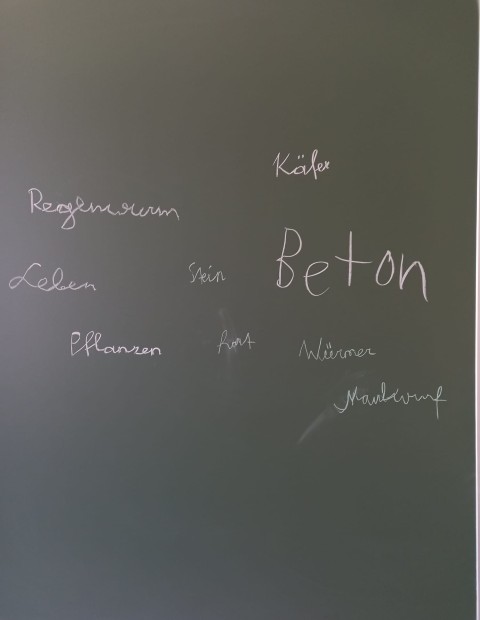 Käfer
Regenwurm
Beton
Stein
Leben
Pflanzen
hart
Würmer
Maulwurf